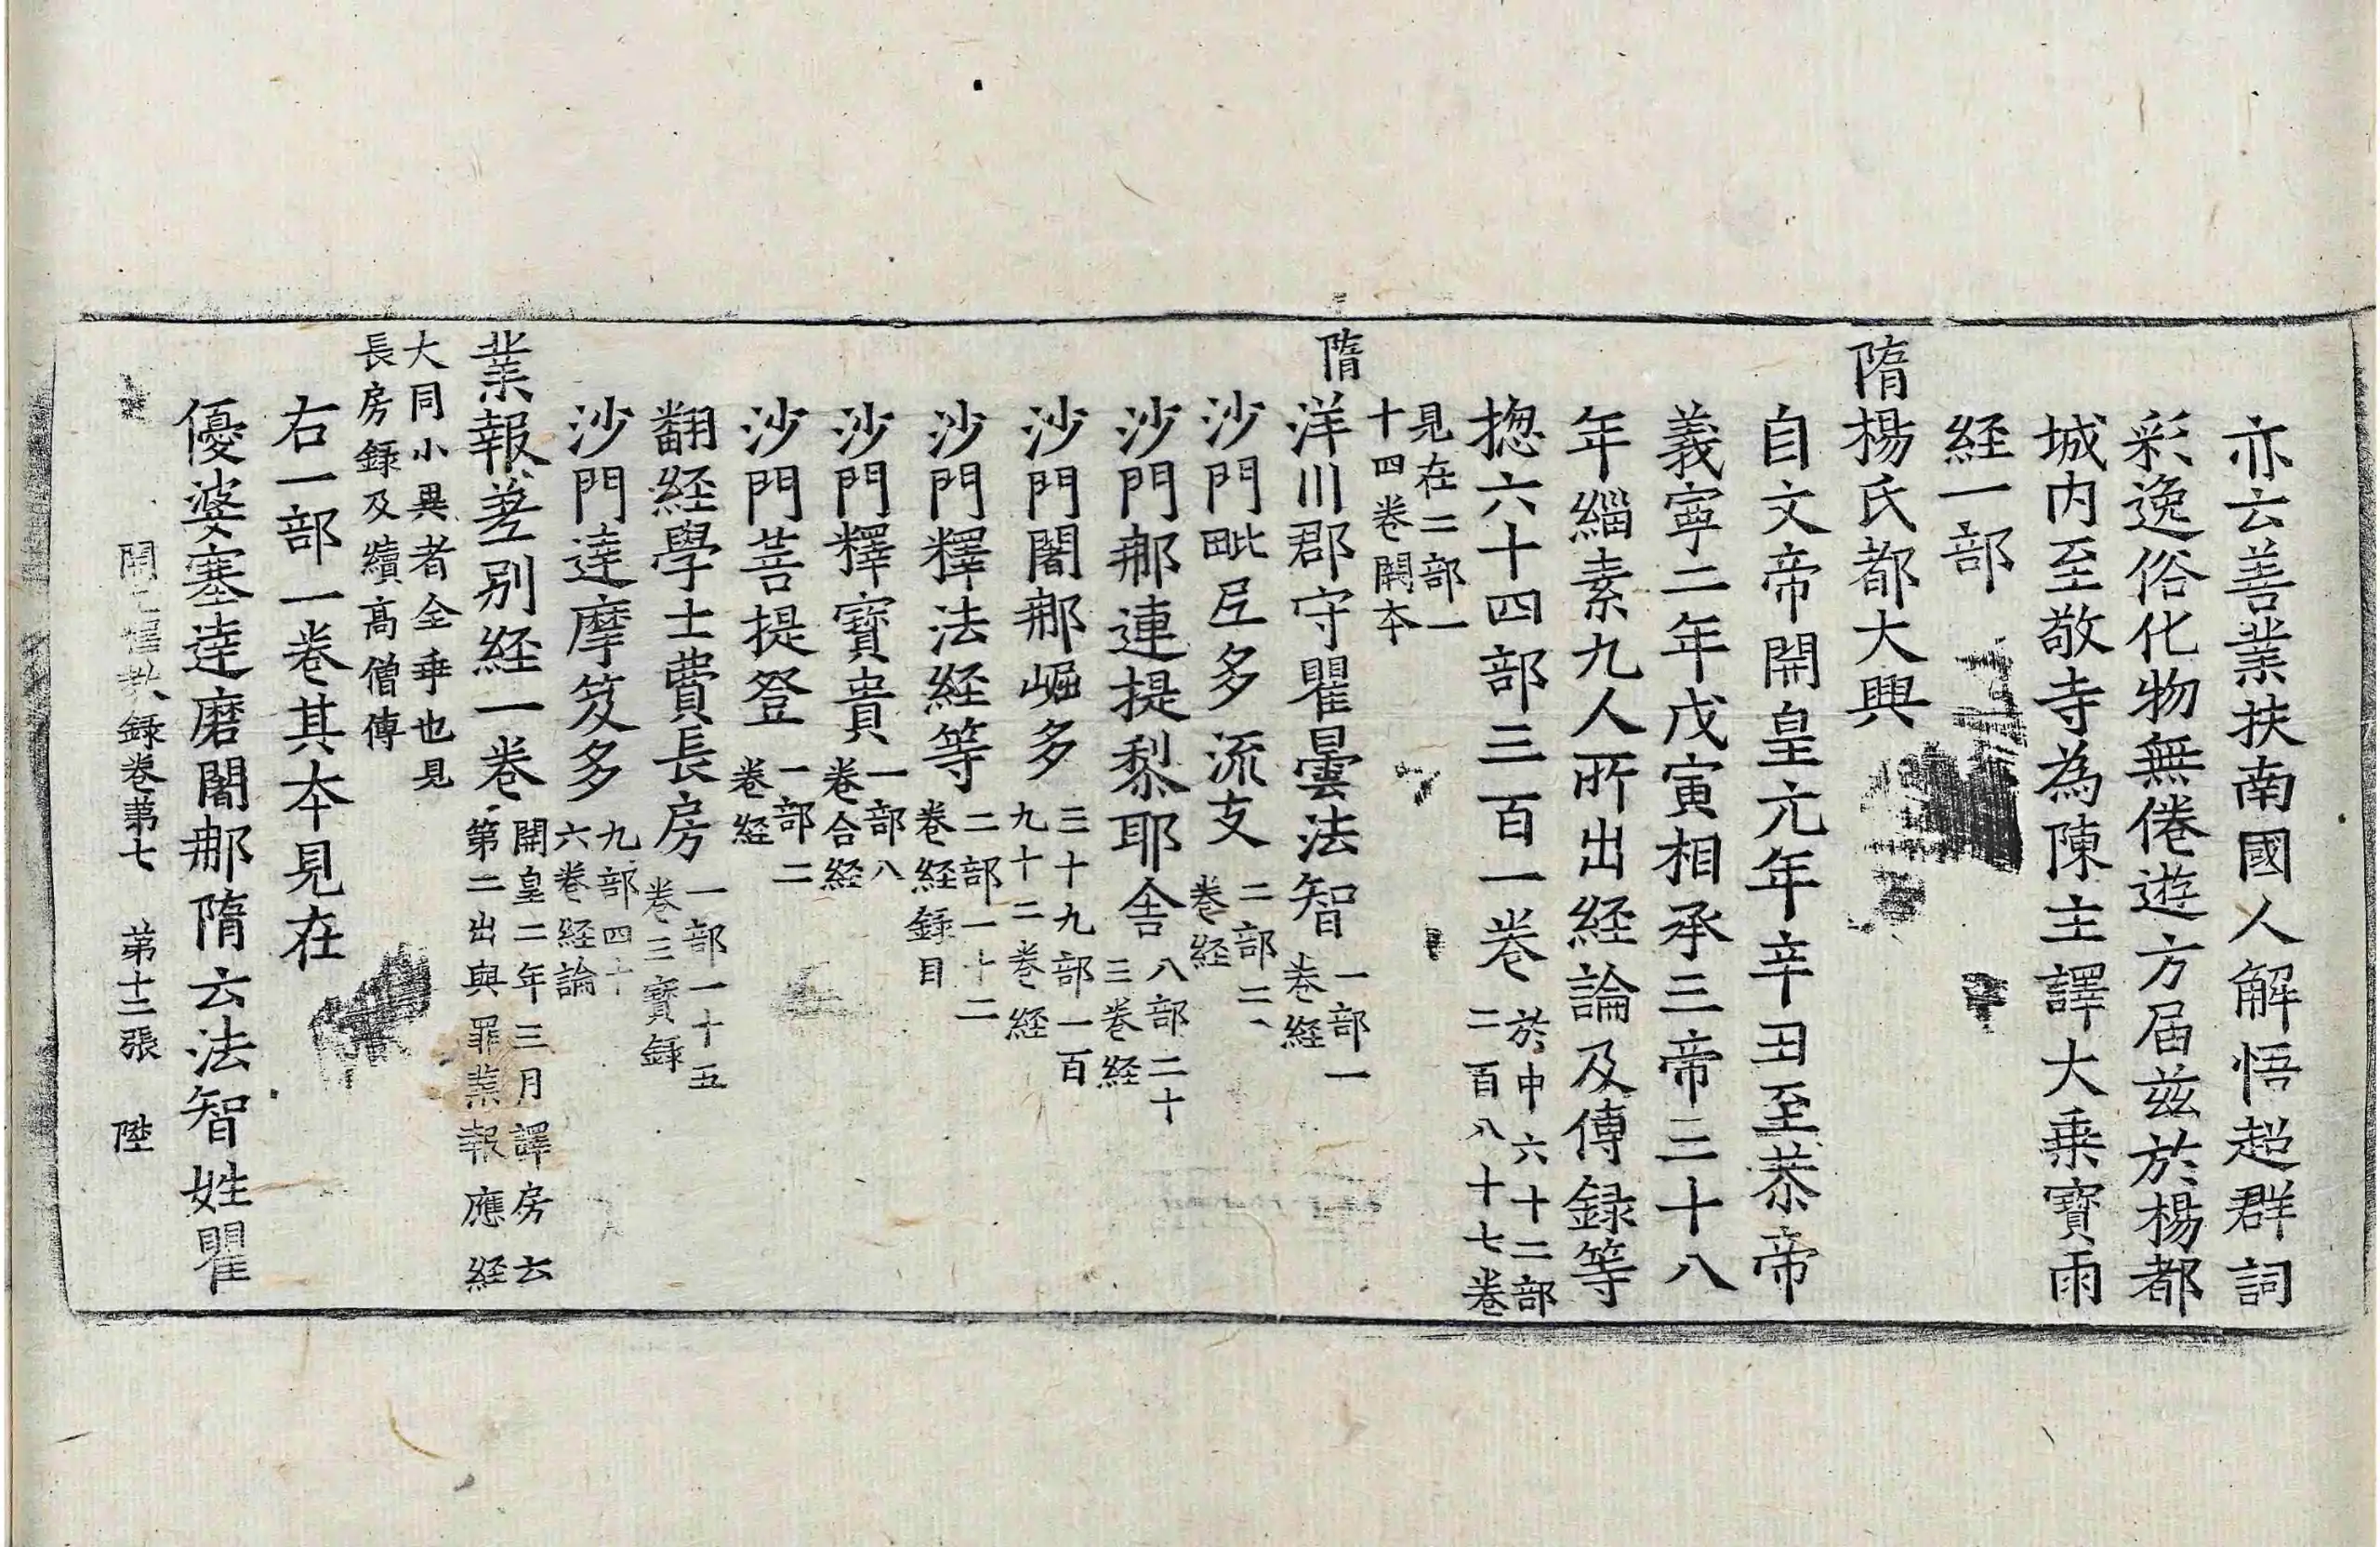 亦云善業扶南國人解悟超群詞
彩逸俗化物無倦遊方届兹於楊都
城内至敬寺為陳主譯大乗寶雨
経一部
隋楊氏都大興
自文帝開皇元年辛丑至恭帝
義寧二年戊寅相承三帝三十八
年緇素九人所出経論及傳録等
揔六十四部三百一卷
於中六十二部
二百八十七卷
見在二部一
十四卷闕本
隋洋川郡守瞿曇法智
一部一
卷経
沙門毗尼多流支
二部二
卷経
沙門那連提黎耶舎
八部二十
三卷経
沙門闍那崛多
三十九部一百
九十二卷経
沙門釋法経等
二部一十二
卷経録目
沙門釋寶貴
一部八
卷合経
沙門菩提登
一部二
卷経
翻経學士費長房
一部一十五
卷三寶録
沙門達摩笈多
九部四十
六卷経論
業報差別経一卷
開皇二年三月譯房云
第二出與罪業報應経
大同小異者全乖也見
長房録及續高僧傳
右一部一卷其本見在
優婆塞達磨闍那隋云法智姓瞿
開元釋教録卷第七 第十二張 陞